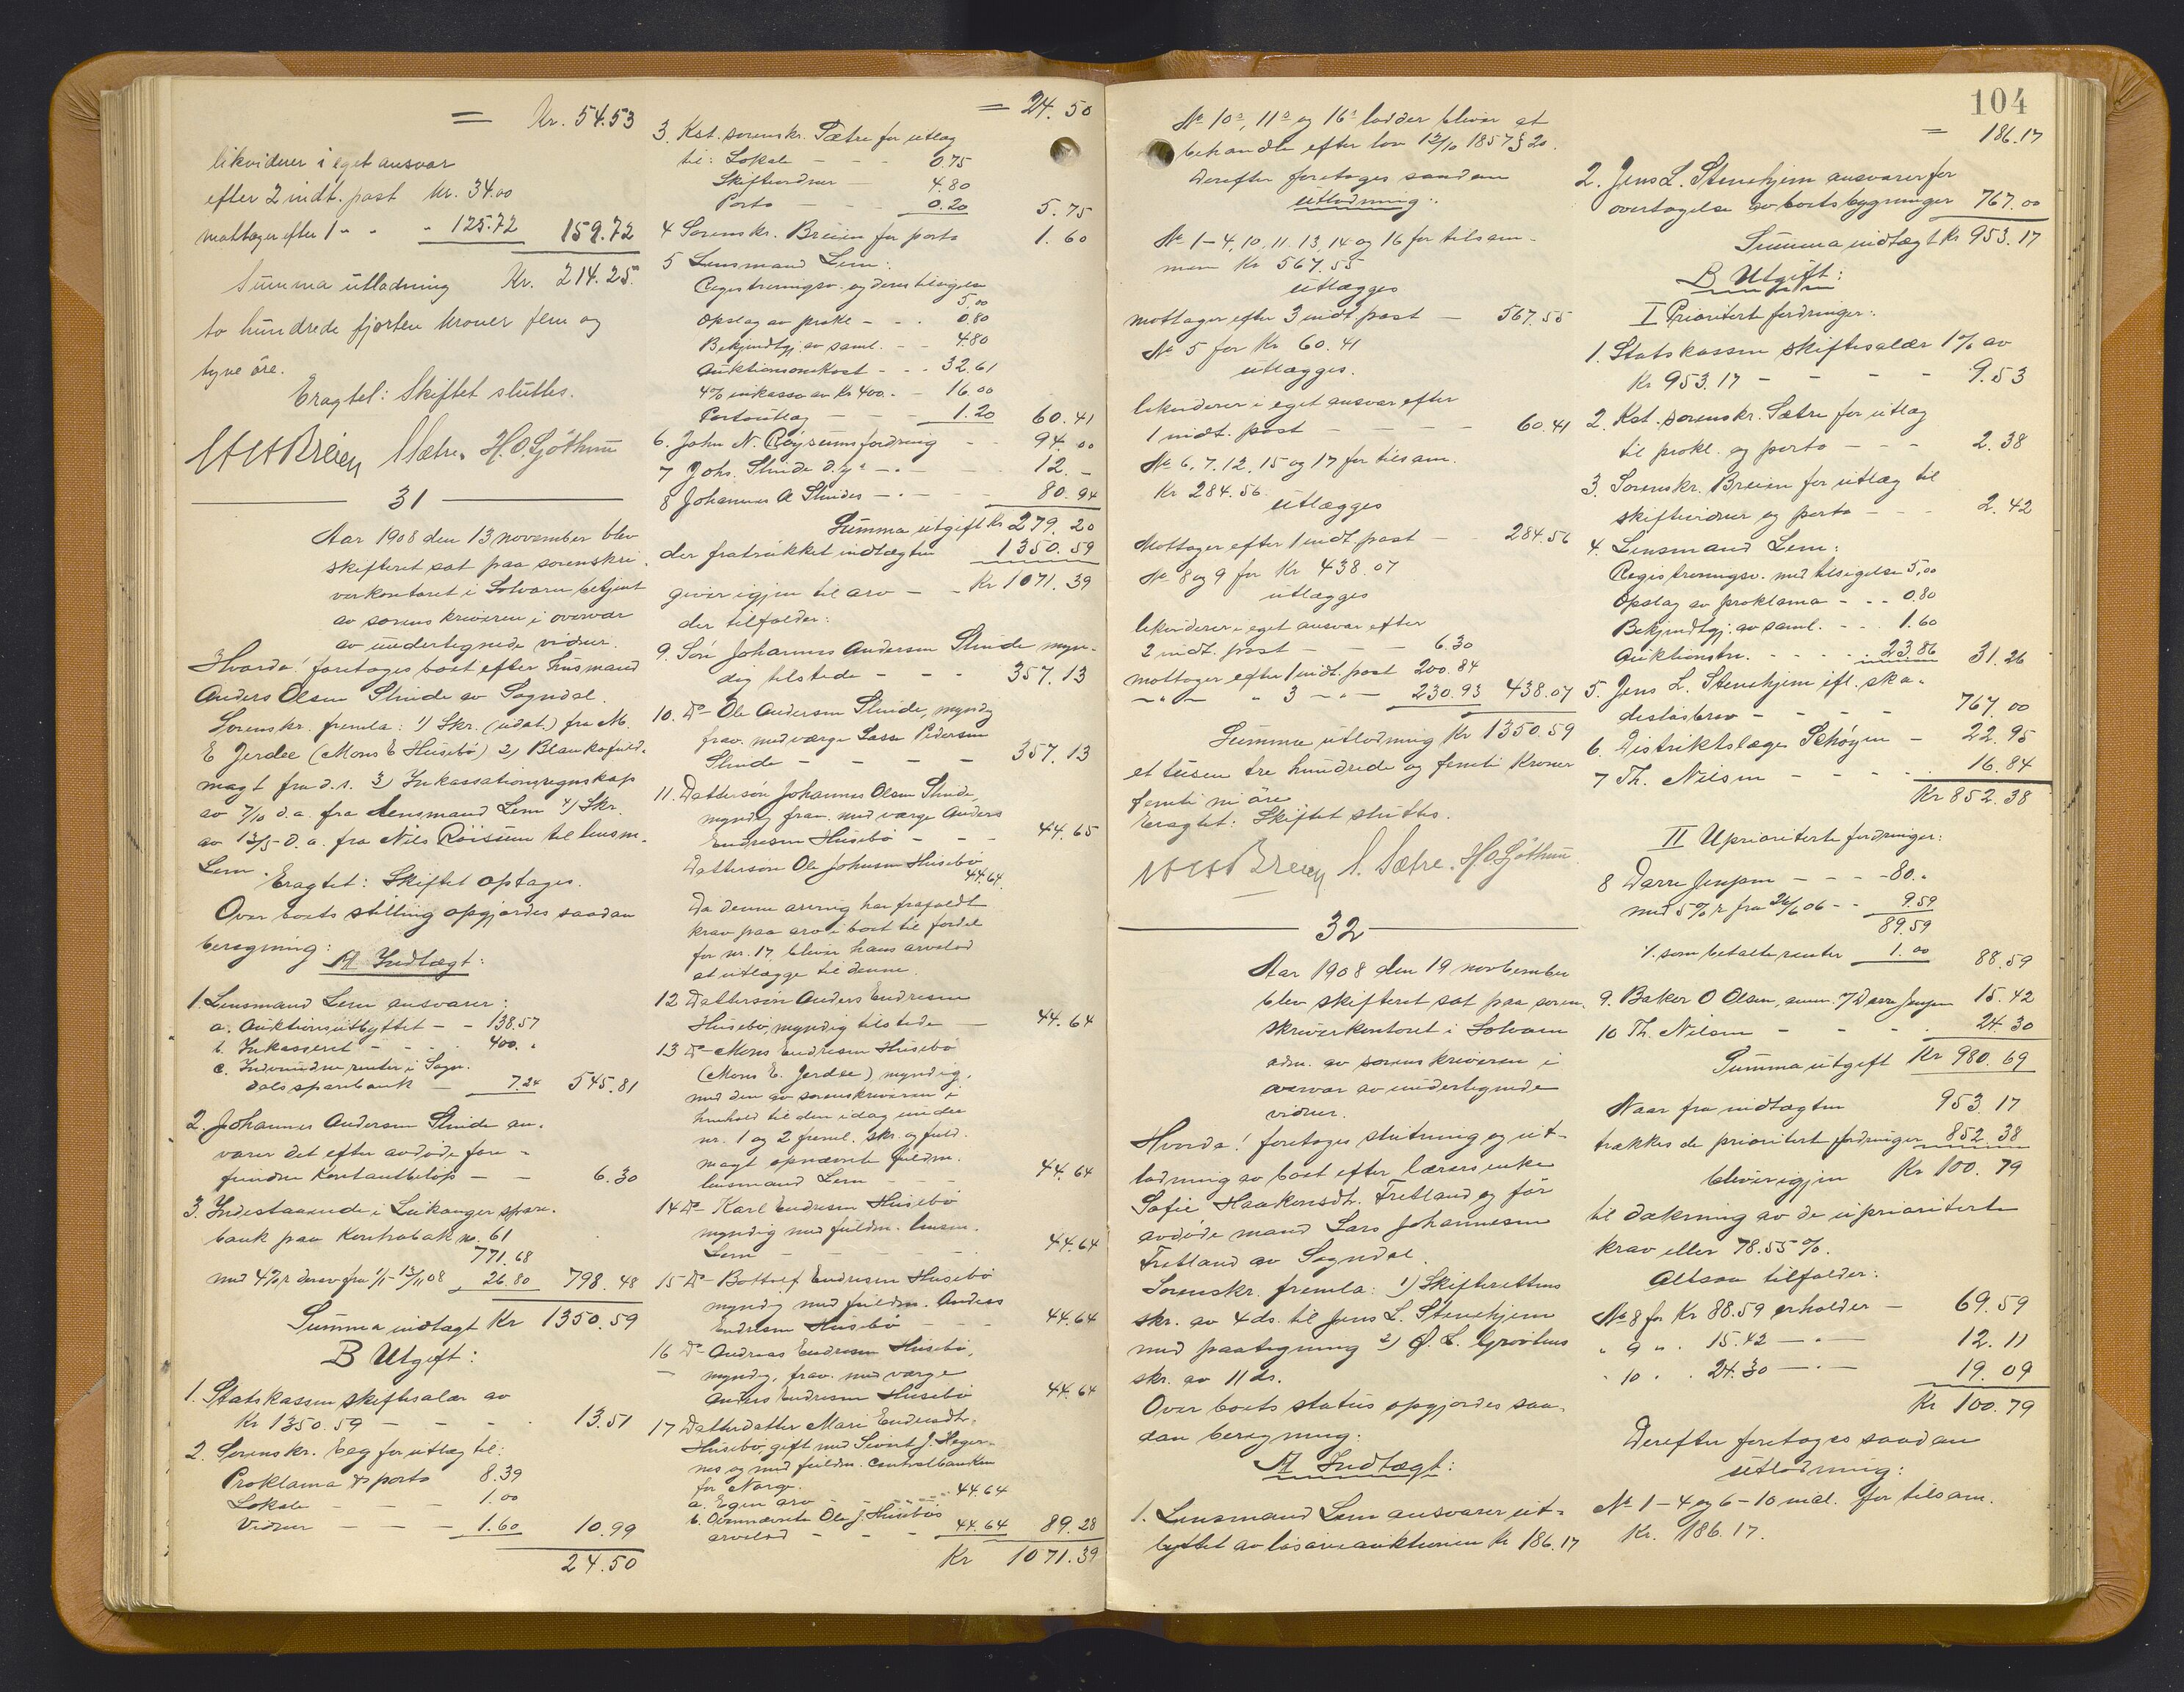 = Kr. 54.53
likviderer i eget ansvar
efter 2 indt. post Kr. 34.00
mottager efter 1 " - " 125.72 159.72
Summa utlodning Kr. 214.25.
to hundrede fjorten kroner fem og
tyve øre.
Eragtet: Skiftet sluttes.
Breien Sætre. H.O. Gjöthun
31
Aar 1908 den 13 november blev
skifteret sat paa sorenskri-
verkontoret i Solvorn betjent
av sorenskriveren i overvær
av undertegnede vidner.
Hvorda! foretoges boet efter husmand
Anders Olsen Slinde av Sogndal.
Sorenskr. fremla: 1) Skr. (udat.) fra M.
E Jerdee (Mons E Husebö) 2) Blankofuld-
magt fra d.s. 3) Inkassationsregnskap
av 7/10 d.a. fra lensmand Lem 4) Skr.
av 13/5 d.a. fra Nils Röisum til lensm.
Lem.
Eragtet: Skiftet optages.
Over boets stilling opgjordes saadan
beregning:
A Indtægt:
1. Lensmand Lem ansvarer:
a. Auktionsutbyttet - - 138.57
b. Inkasseret - - - 400. "
c. Indvundne renter i Sogn-
dals sparebank - 7.24 545.81
2. Johannes Andersen Slinde an-
svarer det efter avdøde fore-
fundne kontantbeløp - - 6.30
3. Indestaaende i Leikanger spare-
bank paa Kontrabok no. 61
771.68
med 4% r. derav fra 1/1 - 13/11 08 26.80 798.48
Summa indtægt Kr 1350.59
B Utgift:
1. Statskassen skiftesalær av
Kr 1350.59 - - - 13.51
2. Sorenskr. Eeg for utlæg til:
Proklama & porto 8.39
Lokale - - - 1.00
Vidner - - - 1.60 10.99
24.50
= 24.50
3. Kst. sorenskr. Sætre for utlæg
til: Lokale - - - 0.75
Skiftevidner - 4.80
Porto - - - 0.20 5.75
4 Sorenskr. Breien for porto 1.60
5 Lensmand Lem:
Registreringsv. og deres tilsigelse
5.00
Opslag av prokl. - - 0.80
Bekjendtgj. av saml. - - 4.80
Auktionsomkost - - - 32.61
4% inkasso av Kr 400. - 16.00
Portoutlæg - - - 1.20 60.41
6. John N. Röysums fordring - - 94.00
7 Johs. Slinde d.y.s - " - 12. -
8 Johannes A Slindes - " - - 80.94
Summa utgift Kr 279.20
der fratrukket indtægten 1350.59
giver igjen til arv - - Kr 1071.39
der tilfalder:
9. Søn Johannes Andersen Slinde myn-
dig tilstede - - - 357.13
10. Do Ole Andersen Slinde, myndig
frav. med værge Lasse Pedersen
Slinde - - - - 357.13
11. Dattersøn Johannes Olsen Slinde,
myndig frav. med værge Anders
Endresen Husebö - - 44.65
Dattersøn Ole Johnsen Husebö
44.64
Da denne arving har frafaldt
krav paa arv i boet til fordel
for nr. 17, bliver hans arvelod
at utlægge til denne.
12 Dattersøn Anders Endresen
Husebö, myndig tilstede - 44.64
13 Do Mons Endresen Husebö
(Mons E. Jerdee) myndig,
med den av sorenskriveren i
henhold til den idag under
nr. 1 og 2 freml. skr. og fuld-
magt opnævnte fuldm.
lensmand Lem - - - 44.64
14 Do Karl Endresen Husebö
myndig med fuldm. lensm.
Lem - - - - 44.64
15 Do Bottolf Endresen Husebö
myndig med fuldm. Anders
Endresen Husebö - - - 44.64
16 Do Andreas Endresen Husebö,
myndig, frav. med værge
Anders Endresen Husebö 44.64
17 Datterdatter Mari Endresdtr.
Husebö, gift med Sivert J. Heger-
nes og med fuldm. Centralbanken
for Norge.
a. Egen arv - - - 44.64
b. Ovennævnte Ole J. Husebös
arvelod - - - 44.64 89.28
Kr 1071.39
104
No 10s, 11s og 16s lodder bliver at
behandle efter lov 12/10 1857 § 20.
Derefter foretoges saadan
utlodning:
No 1-4, 10, 11. 13, 14 og 16 for tilsam-
men Kr 567.55
utlægges
mottager efter 3 indt. post - 567.55
No 5 for Kr 60.41
utlægges.
likviderer i eget ansvar efter
1 indt. post - - - - 60.41
No 6, 7. 12, 15 og 17 for tilsam.
Kr 284.56
utlægges
Mottager efter 1 indt. post - 284.56
No 8 og 9 for Kr 438.07
utlægges
likviderer i eget ansvar efter
2 indt. post - - - 6.30
mottager efter 1 indt. post 200.84
- " - " 3 - " - 230.93 438.07
Summa utlodning Kr 1350.59
et tusen tre hundrede og femti kroner
femti ni öre
Eragtet: Skiftet sluttes.
Breien S. Sætre. H.O. Gjöthun
32
Aar 1908 den 19 november
blev skifteret sat paa soren-
skriverkontoret i Solvorn
adm. av sorenskriveren i
overvær av undertegnede
vidner.
Hvorda! foretoges slutning og ut-
lodning av boet efter lærers enke
Sofie Haakonsdtr. Fretland og før
avdøde mand Lars Johannesen
Fretland av Sogndal.
Sorenskr. fremla: 1) Skifterettens
skr. av 4 ds. til Jens L. Stenehjem
med paategning 2) Ø. L. Grøthus
skr. av 11 ds.
Over boets status opgjordes saa-
dan beregning:
A Indtægt:
1. Lensmand Lem ansvarer ut-
byttet av løsøreauktionen Kr 186.17
= 186.17
2. Jens L. Stenehjem ansvarer for
overtagelse av boets bygninger 767.00
Summa indtægt Kr 953.17
B Utgift:
I Prioriterte fordringer:
1. Statskassen skiftesalær 1% av
Kr 953.17 - - - - 9.53
2. Kst. sorenskr. Sætre for utlæg
til prokl. og porto - - - 2.38
3. Sorenskr. Breien for utlæg til
skiftevidner og porto - - - 2.42
4. Lensmand Lem:
Registreringsv. med tilsigelse 5.00
Opslag av proklama - - - 0.80
Bekjendtgj. av saml. - - - 1.60
Auktionstr. - - - - 23.86 31.26
5. Jens L. Stenehjem ifl. ska-
desløsbrev - - - - - 767.00
6. Distriktslæge Schöyen - 22.95
7 Th. Nilsen - - - - 16.84
Kr 852.38
II Uprioriterte fordringer:
8 Darre Jenssen - - - - 80. "
med 5% r. fra 26/6 06 - - 9.59
89.59
% som betalte renter 1.00 88.59
9. Baker O Olsen, Darre Jenssen 15.42
10 Th. Nilsen - - - - 24.30
Summa utgift Kr 980.69
Naar fra indtægten 953.17
trækkes de prioriterte fordringer 852.38
bliver igjen Kr 100.79
til dækning av de uprioriterte
krav eller 78.55%.
Altsaa tilfalder:
No 8 for Kr 88.59 erholder - 69.59
" 9 " " 15.42 - " - 12.11
" 10 " " 24.30 - " - 19.09
Kr 100.79
Derefter foretoges saadan
utlodning:
No 1-4 og 6-10 inkl. for tilsam.
Kr. 186.17.